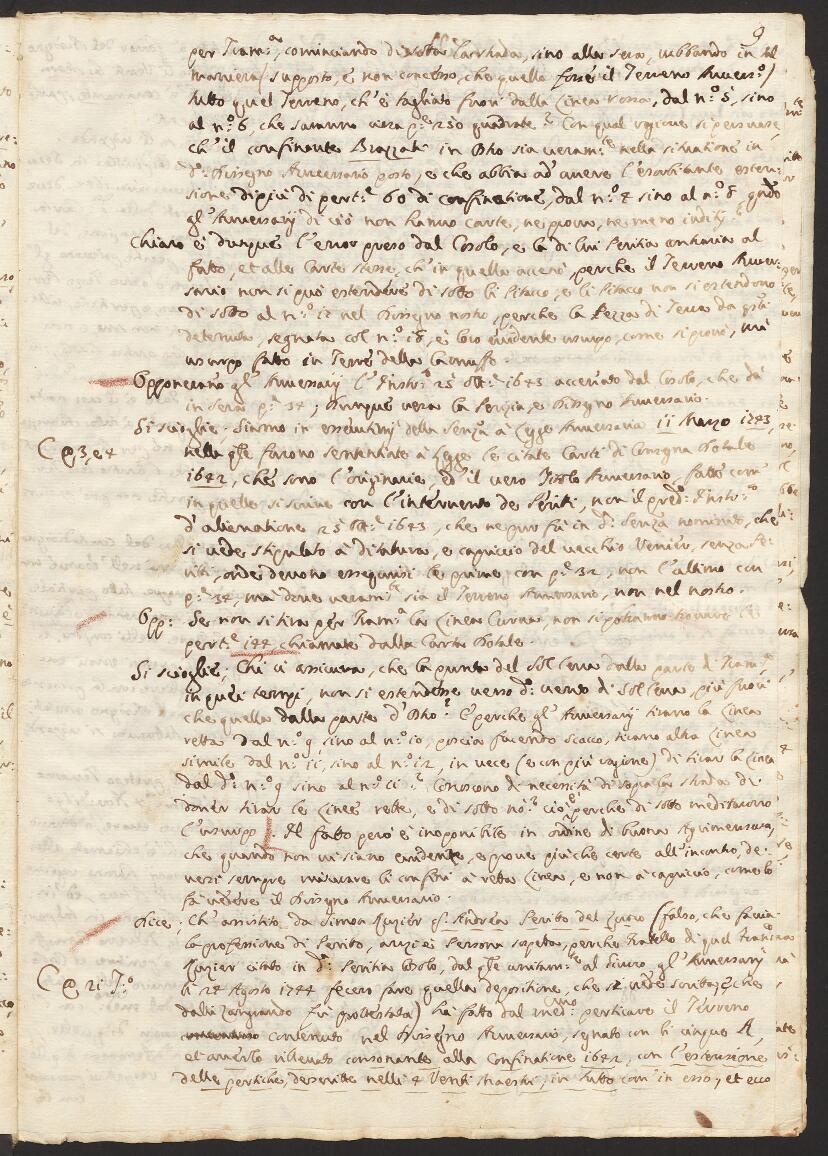 9
per Tram:ª, cominciando di sotto la strada, sino alla sera, rubbando in tal
maniera (supposto, e non concesso, che quello fosse il Terreno Auuers:º)
tutto quel Terreno, ch'è tagliato fuori dalla Linea rossa, dal n:º 5, sino
al n:º 6, che saranno circa p:e 250 quadrate. Con qual ragione si persuase,
ch'il confinante Brazzati in Bho sia ueram:te nella situatione in
d:º Dissegno Auuersario posto, e che abbia ad' auere l'esorbitante esten=
sione di più di pert:e 60 di confinatione, dal n:º 4 sino al n:º 8, qndo
gl'Auuersarij di ciò non hanno carte, ne proue, ne meno inditij?
Chiaro è dunque l'error preso dal Cosolo, e la di lui Peritia contraria al
fatto, et alle Carte stesse, ch'in quella accenò, perche il Terreno Auuer=
sario non si può estendere di sotto li Pitacco, e li Pitacco non si estendono
di sotto al n:º 12 nel Dissegno nostro, perche la Pezza di Terra da qsti
detenuta, segnata col n:º 8, è loro euidente usurpo, come si prouò, mà
usurpo fatto in Terre della
Opponeranno gl'Auuersarij l'Instr:º 25 Ott:e 1643 accenato dal Cosolo, che dà
in Sera p:e 34; Dunque uera la Perizia, e Dissegno Auuersario.
Si scioglie. Siamo in essecutione della Senza à Legge Auuersaria 11 Marzo 1743,
C @ 3, e 4
nella qle furono sententiate à Legge le citate Carte di Consegna Dotale
1642, che sono l'originarie, ed'il uero Titolo Auuersario, fatte com'
in quelle si scriue con l'interuento de Periti, non il pred:º Instr:º
d'alienatione 25 Ott:e 1643, che nepur fù in d:ª Senza nominato, che
si uede stipulato à dittatura, e capriccio del uecchio Venier, senza Pe=
riti, onde deuono essequirsi le prime con p:e 32, non l'ultimo con
p:e 34, mà doue ueram:te sia il Terreno Auuersario, non nel nostro.
Opp: Se non si tira per Tram:ª la Linea Curua, non si potranno trouare le
pert:e 144 chiamate dalla Carta Dotale.
Si scioglie; Chi ci assicura, che la punta del Sol Leua dalla parte di Tram:ª
in quei tempi, non si estendesse uerso d:º uento di Sol Leua, più fuori
che quella dalla parte d'Bho? E perche gl'Auuersarij tirano la Linea
retta dal n:º 9, sino al n:º 10, poscia facendo scacco, tirano altra Linea
simile dal n:º 11, sino al n:º 12, in uece (e con più ragione) di tirar la Linea
dal d:º n:º 9 sino al n:º 11? Conoscono di necessità di sopra la strada di
douer tirar le Linee rette, e di sotto nò? ciò è, perche di sotto meditarono
l'usurpo. Il fatto però è inopponibile in ordine di buona Agrimensura,
che quando non ui siano euidenti, e proue più che certe all'incontro, de=
uesi sempre misurare li confini à retta Linea, e non à capriccio, come lo
fà uedere il Dissegno Auuersario.
Dice; Ch' assistito da Simon Ruzier q. Andrea Perito del Zudro (falso, che facia
la professione di Perito, anzi è Persona sospetta, perche fratello di quel
C @ 21 T:º
Ruzier citato in d:ª Peritia Cosolo, dal qle unitam:te al Sicuro gl'Auuersarij
li 24 Agosto 1744 fecero fare quella depositione, che si uede scritta, e che
dalli Zangrando fù protestata) hà fatto dal med:mo perticare il Terreno
contenuto nel Dissegno Auuersario, segnato con li cinque A,
et auerlo rileuato consonante alla Confinatione 1642, con l'estensione
delle pertiche, descritte nelli 4 Venti Maestri, in tutto com'in esso, et ecco